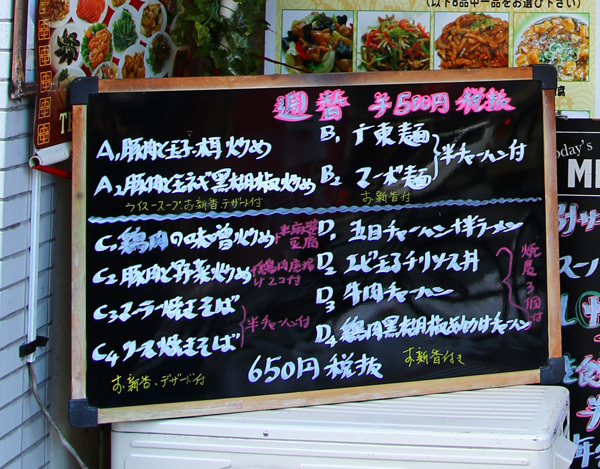 (以下8品中一品をお選び下さい)
週替 半500円 税抜
A1豚肉と玉子木耳炒め
A2豚肉と玉ネギ黒胡椒炒め
ライス・スープ・お新香・デザート付
B1 广東麺
B2 マーボ麺
半チャーハン付
お新香付
C1 鶏肉の味噌炒め
半麻婆豆腐
C2 豚肉と野菜炒め
C3 マーラー焼きそば
C4 ソース焼きそば
半チャーハン付
お新香・デザート付
D1 五目チャーハン+半ラーメン
D2 エビ玉子チリソース丼
D3 牛肉チャーハン
D4 鶏肉黒胡椒あんかけチャーハン
焼売3個付
お新香付き
650円 税抜
oday's
ME